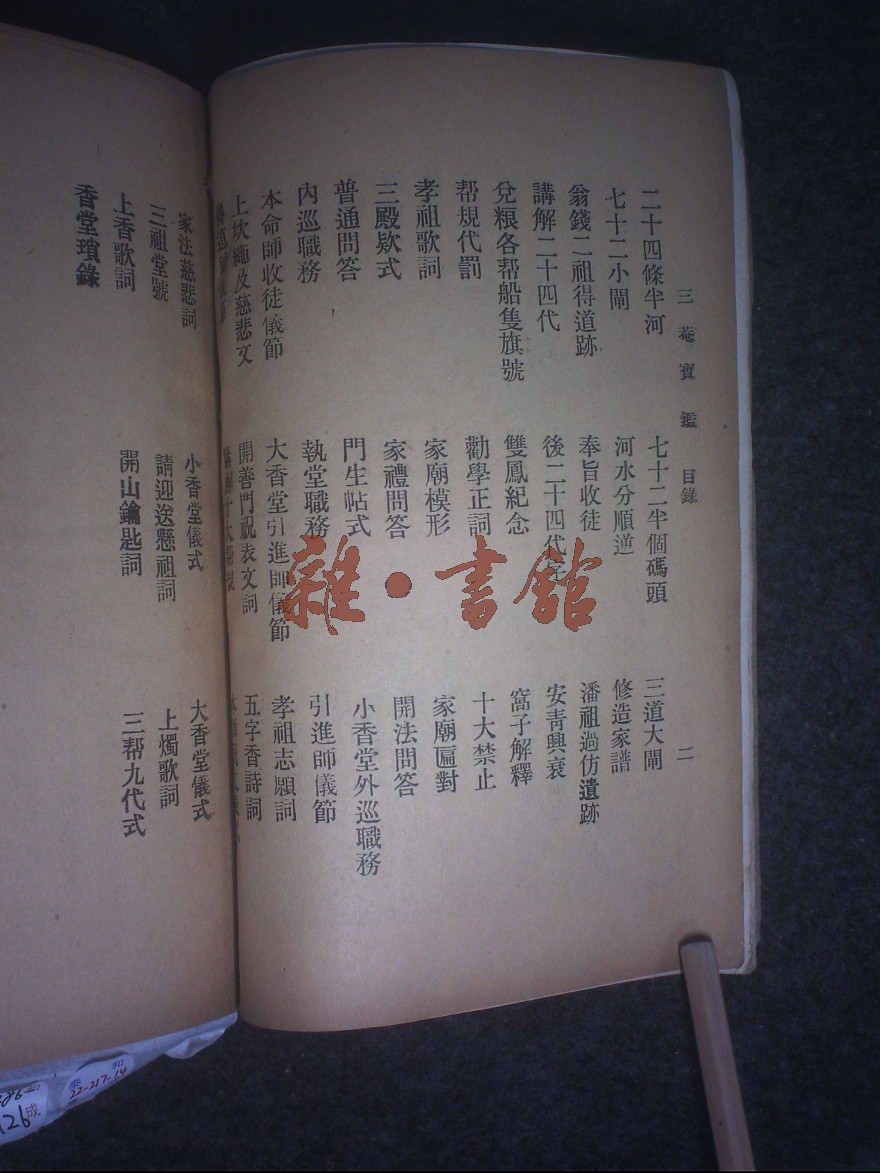 三菴寶鑑 目錄 二
二十四條半河 七十二半個碼頭 三道大閘
七十二小閘 河水分順逆 修造家譜
翁錢二祖得道跡 奉旨收徒 潘祖過仿遺跡
講解二十四代 後二十四代 安青興衰
兌粮各帮船隻旗號 雙鳳紀念 窩子解釋
帮規代罰 勸學正詞 十大禁止
孝祖歌詞 家廟模形 家廟匾對
三殿欵式 家禮問答 開法問答
普通問答 門生帖式 小香堂外巡職務
內巡職務 執堂職務 引進師儀節
本命師收徒儀節 大香堂引進師儀節 孝祖志願詞
上坎繩及慈悲文 開善門祝表文詞 五字香詩詞
十大
家法慈悲詞 小香堂儀式 大香堂儀式
三祖堂號 請迎送懸祖詞 上燭歌詞
上香歌詞 開山鑰匙詞 三帮九代式
香堂瑣錄
雜·書館
泰 和
22-217-64
126成